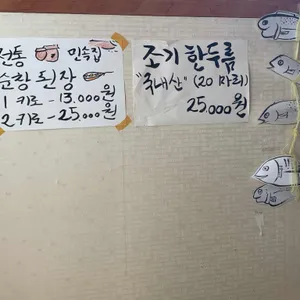 전통 민속집
순창 된장
1 키로 - 13.000원
2 키로 - 25.000원
조기 한두름
"국내산" (20 마리)
25.000원